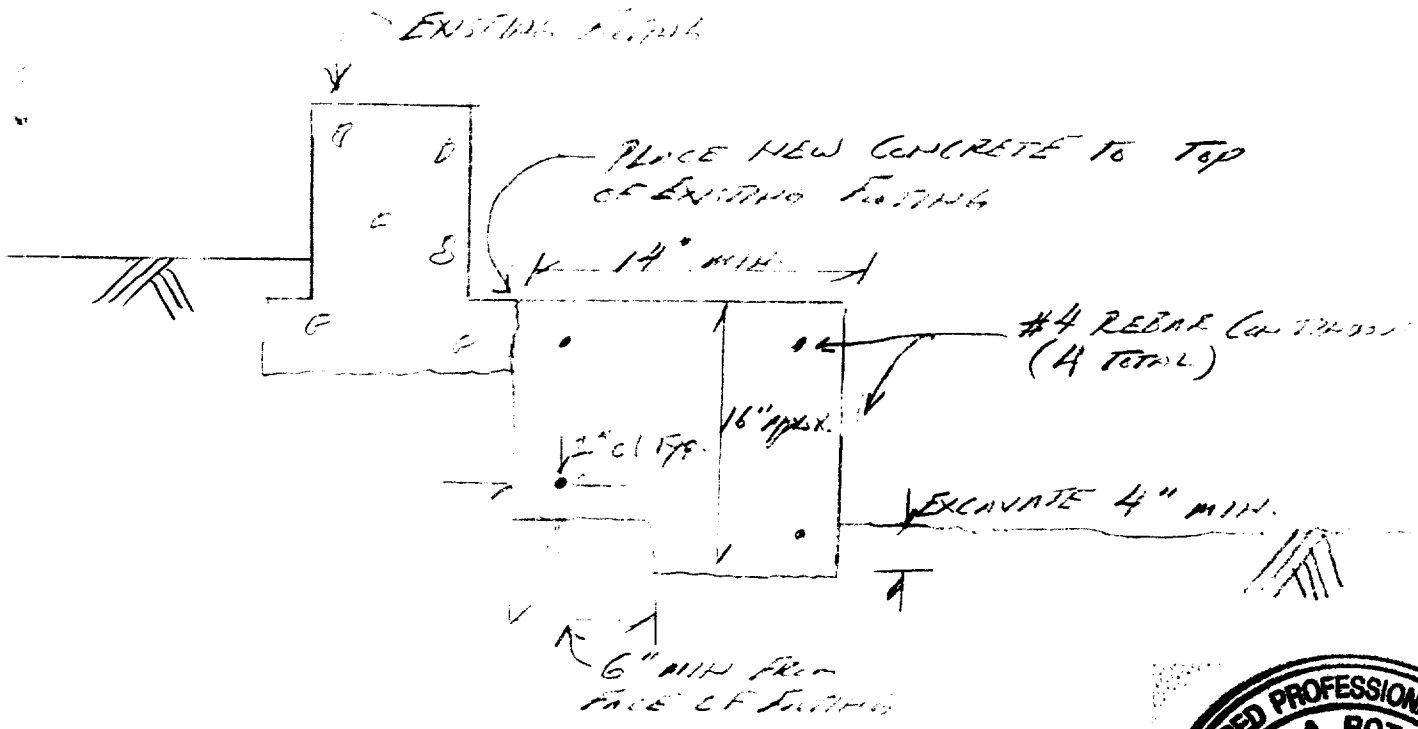 EXISTING FOOTING
PLACE NEW CONCRETE TO TOP
OF EXISTING FOOTING
14" MIN.
#4 REBAR CONTINUOUS
(4 TOTAL)
16" Approx.
2" cl Typ.
EXCAVATE 4" MIN.
6" MIN FROM
FACE OF FOOTING
PROFESSION